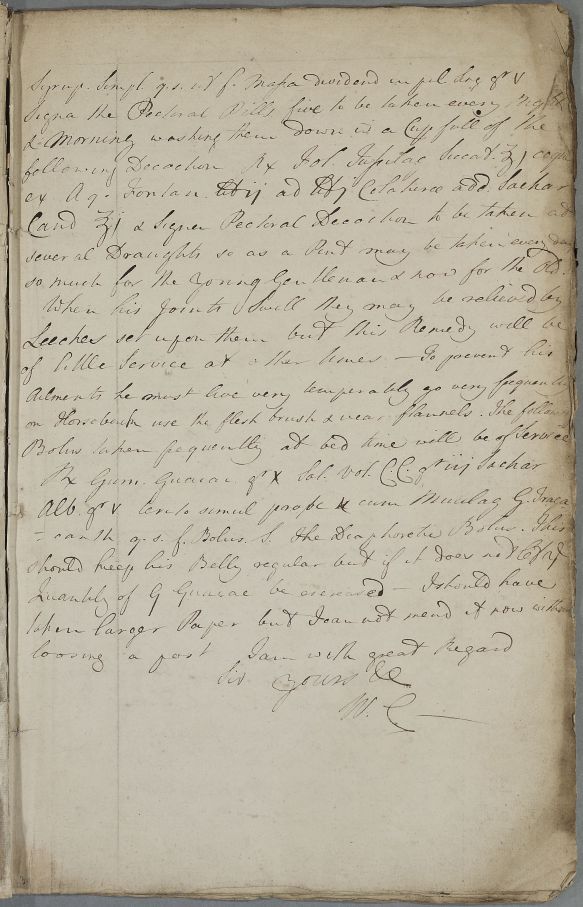 Syrup. Simpl. q.s. ut f. Massa dividend in pil sing gr V
Signa the Pectoral Pills five to be taken every Night
& Morning washing them down in a Cupfull of the
following Decoction Rx Fol. Tussilag Siccat. ʒj coque
ex Aq. Fontan. ad Colaturæ add. Sachar
Cand ʒj & Signa Pectoral Decoction to be taken at
several Draughts so as a Pint may be taken every day
so much for the young Gentleman & now for the Old.
When his Joints Swell they may be relieved by
Leeches set upon them but this Remedy will be
of little Service at other times — To prevent his
Ailments he must live very temperately go very frequently
on Horseback use the flesh brush & wear flannels. The following
Bolus taken frequently at bed time will be of Service
Rx Gum. Guaiac. gr X Sal. Vol. CC. gr iij Sachar
Alb. gr V tere simul probe cum Mucilag G. Traga
= canth q.s. f. Bolus. S. the Diaphoretic Bolus. This
should keep his Belly regular but if it does not
Quantity of G Guaiac be encreased — I should have
taken larger Paper but I can not mend it now without
loosing a post I am with great Regard
Sir yours &c
W. C